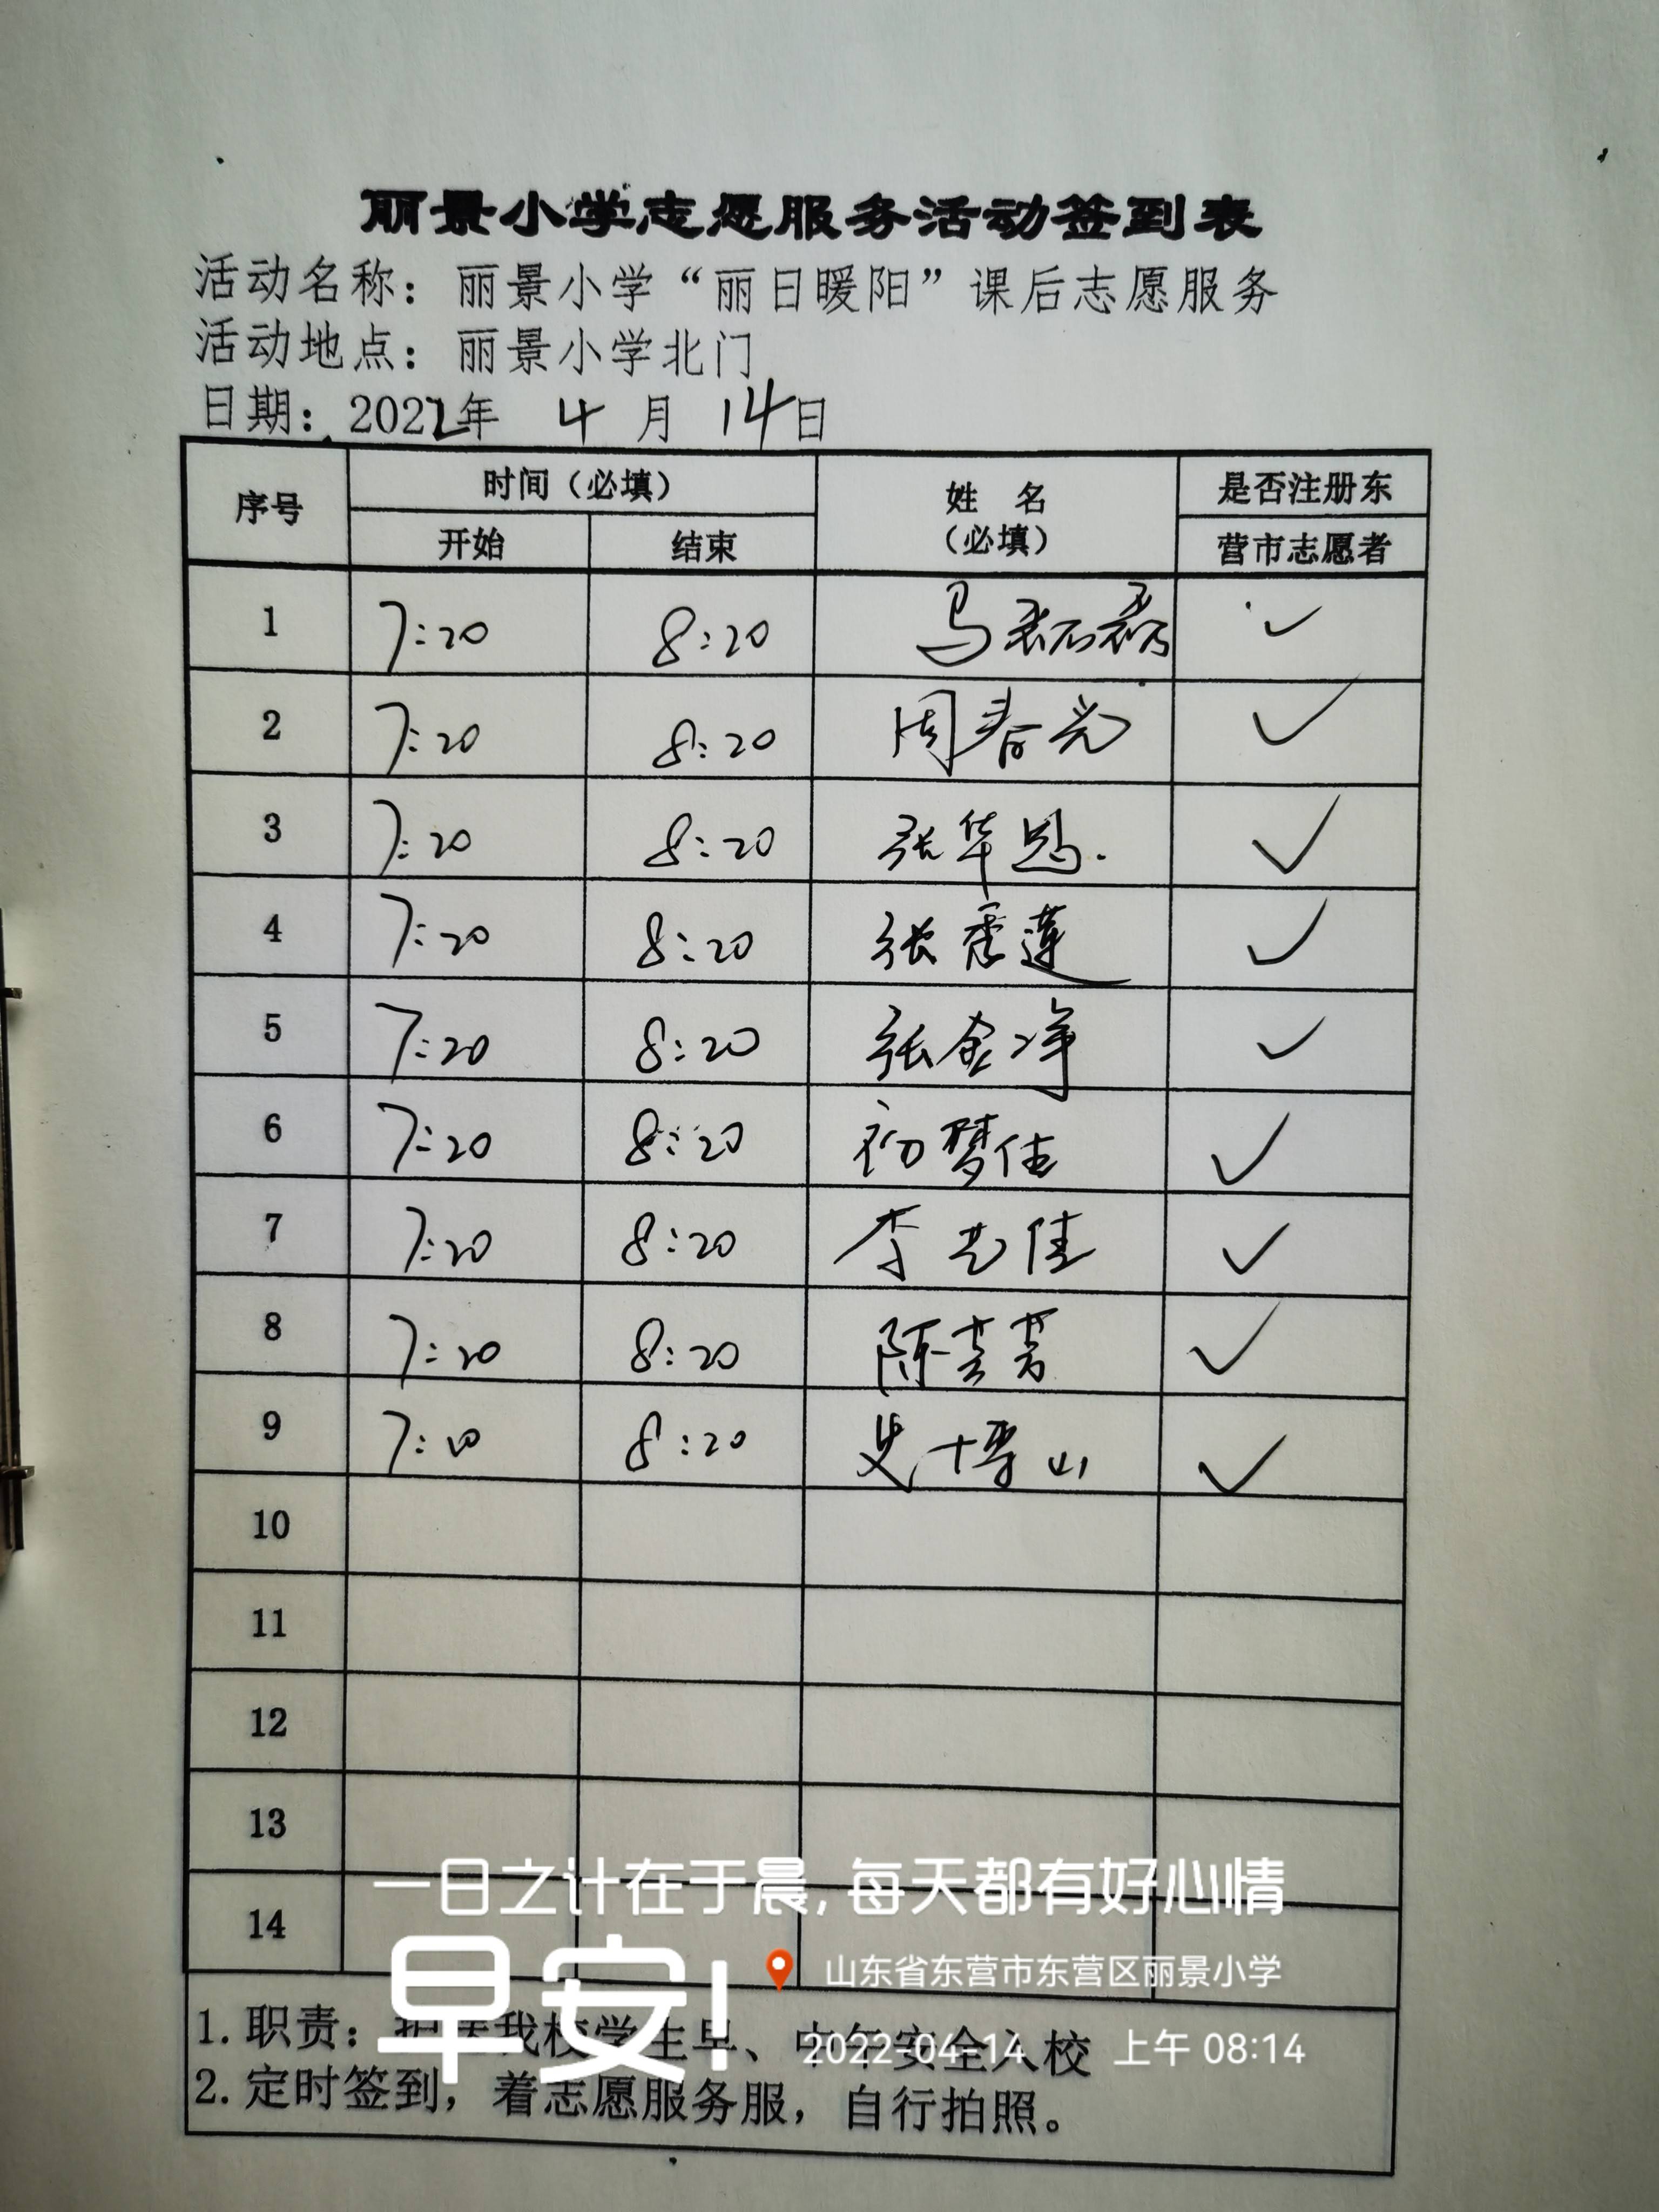 丽景小学志愿服务活动签到表
活动名称：丽景小学“丽日暖阳”课后志愿服务
活动地点：丽景小学北门
日期：2022年 4 月 14日
序号 时间（必填） 姓 名 是否注册东
开始 结束 （必填） 营市志愿者
1 7:20 8:20 马 ✓
2 7:20 8:20 周春光 ✓
3 7:20 8:20 张华 ✓
4 7:20 8:20 张秀莲 ✓
5 7:20 8:20 张金净 ✓
6 7:20 8:20 初梦佳 ✓
7 7:20 8:20 李艺佳 ✓
8 7:20 8:20 陈芸芳 ✓
9 7:20 8:20 史博山 ✓
10
11
12
13
一日之计在于晨，每天都有好心情
14
早安！
山东省东营市东营区丽景小学
1.职责：我校学生早、中午安全入校
2022-04-14 上午 08:14
2.定时签到，着志愿服务服，自行拍照。